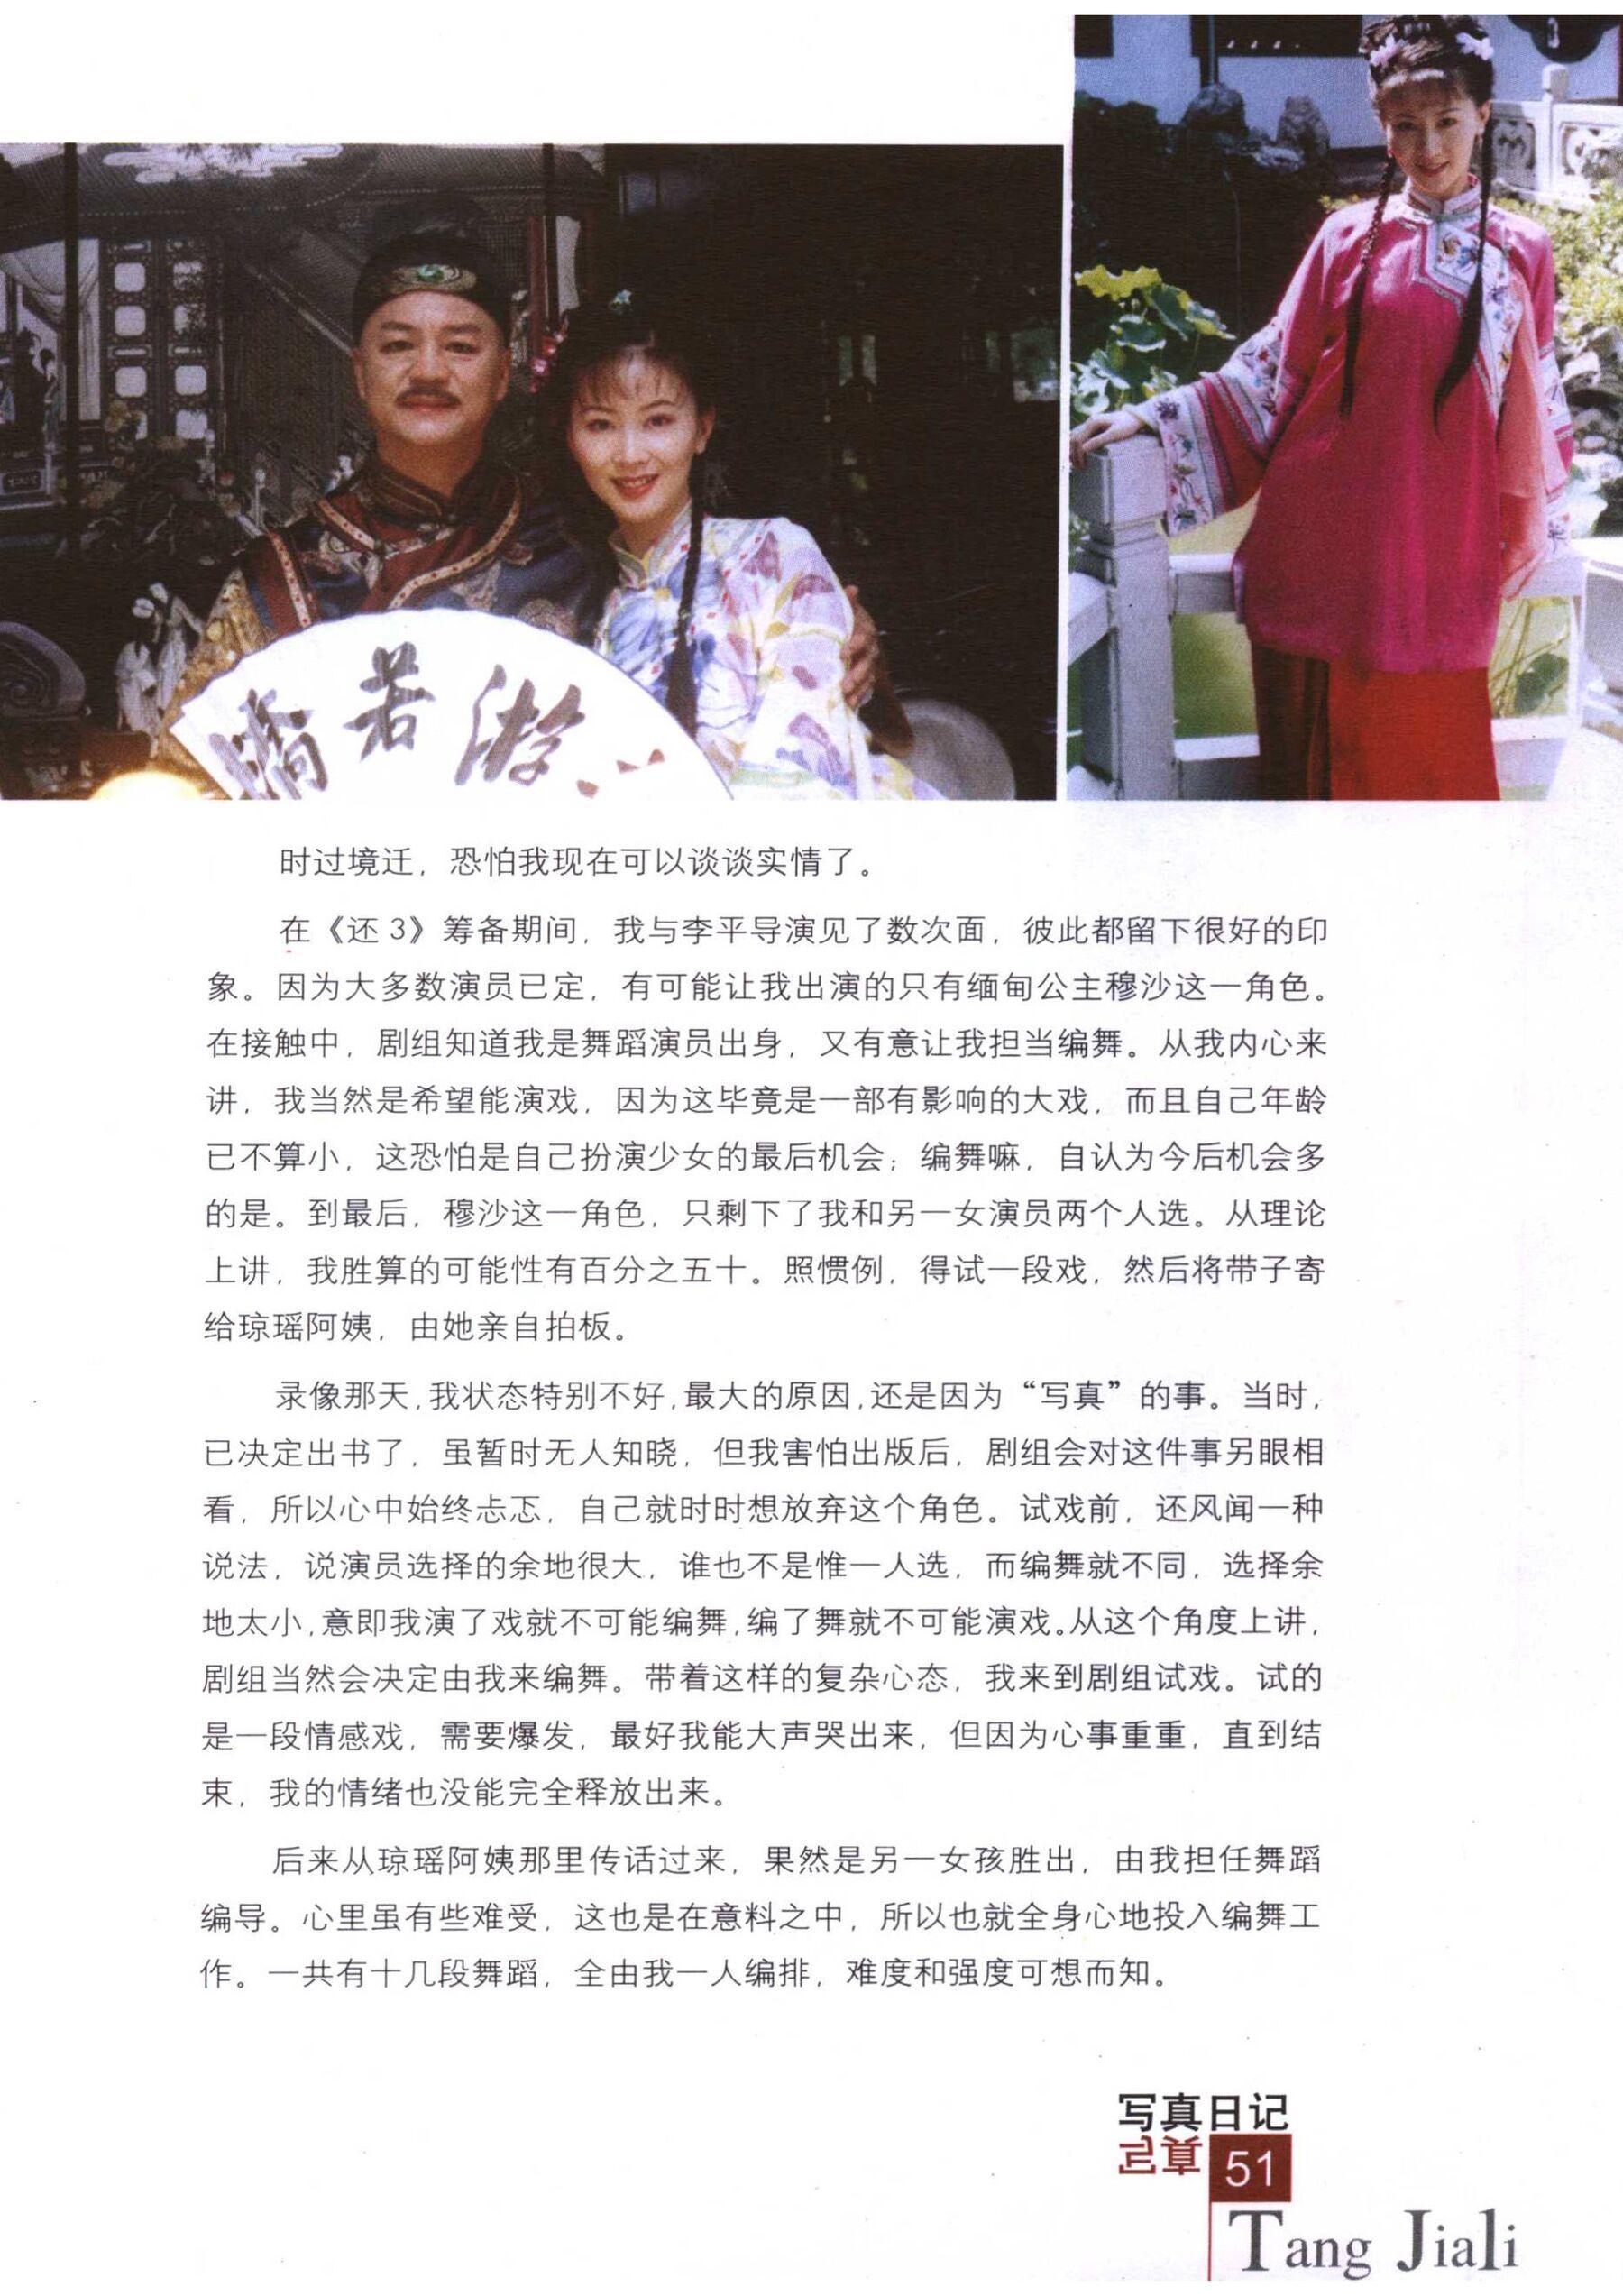 若游
时过境迁，恐怕我现在可以谈谈实情了。
在《还 3》筹备期间，我与李平导演见了数次面，彼此都留下很好的印
象。因为大多数演员已定，有可能让我出演的只有缅甸公主穆沙这一角色。
在接触中，剧组知道我是舞蹈演员出身，又有意让我担当编舞。从我内心来
讲，我当然是希望能演戏，因为这毕竟是一部有影响的大戏，而且自己年龄
已不算小，这恐怕是自己扮演少女的最后机会；编舞嘛，自认为今后机会多
的是。到最后，穆沙这一角色，只剩下了我和另一女演员两个人选。从理论
上讲，我胜算的可能性有百分之五十。照惯例，得试一段戏，然后将带子寄
给琼瑶阿姨，由她亲自拍板。
录像那天，我状态特别不好，最大的原因，还是因为“写真”的事。当时，
已决定出书了，虽暂时无人知晓，但我害怕出版后，剧组会对这件事另眼相
看，所以心中始终忐忑，自己就时时想放弃这个角色。试戏前，还风闻一种
说法，说演员选择的余地很大，谁也不是惟一人选，而编舞就不同，选择余
地太小，意即我演了戏就不可能编舞，编了舞就不可能演戏。从这个角度上讲，
剧组当然会决定由我来编舞。带着这样的复杂心态，我来到剧组试戏。试的
是一段情感戏，需要爆发，最好我能大声哭出来，但因为心事重重，直到结
束，我的情绪也没能完全释放出来。
后来从琼瑶阿姨那里传话过来，果然是另一女孩胜出，由我担任舞蹈
编导。心里虽有些难受，这也是在意料之中，所以也就全身心地投入编舞工
作。一共有十几段舞蹈，全由我一人编排，难度和强度可想而知。
写真日记
写真
51
Tang Jiali